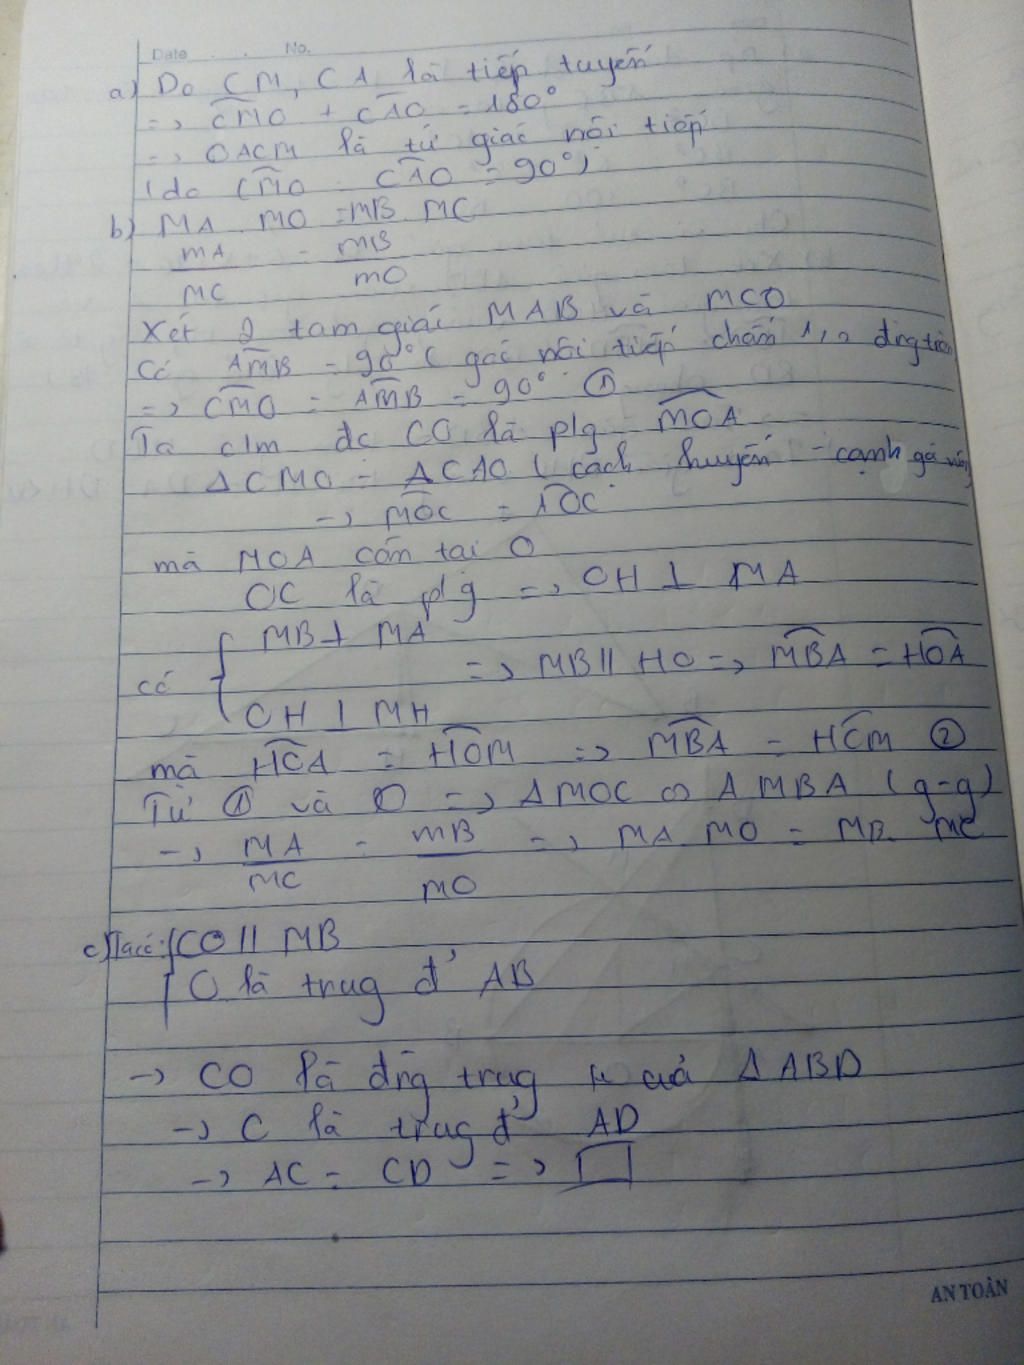 Date . . No.
a) Do CM, CA là tiếp tuyến
=> CMO + CAO = 180°
=> OACM là tứ giác nội tiếp
(do CMO = CAO = 90°)
b) MA MO = MB MC
MA/MC = MB/MO
Xét 2 tam giác MAB và MCO
Có AMB = 90° (góc nội tiếp chắn 1/2 đng tròn
=> CMO = AMB = 90° ①
Ta c/m đc CO là p/g MOA
ΔCMO = ΔCAO ( cạch huyền - cạnh gó vuông
-> MOC = AOC
mà MOA cân tại O
OC là p/g => OH ⊥ MA
có { MB ⊥ MA
=> MB // HO => MBA = HOA
OH ⊥ MH
mà HOA = HOM => MBA = HOM ②
Từ ① và ② => ΔMOC ∽ ΔMBA (g-g)
-> MA/MC = MB/MO => MA MO = MB MC
c) Ta có: { CO // MB
O là trug đ' AB
-> CO là đng trug b của ΔABD
-> C là trug đ' AD
-> AC = CD => □
AN TOÀN